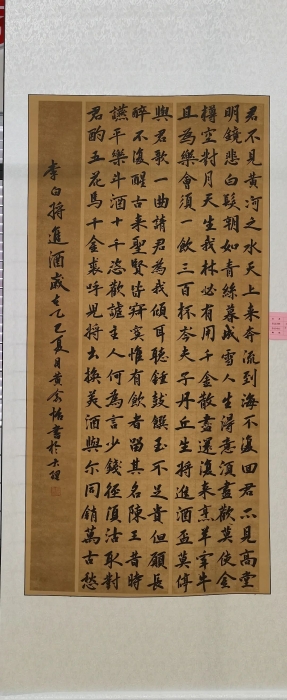 君不見黃河之水天上來奔流到海不復回君不見高堂
明鏡悲白髮朝如青絲暮成雪人生得意須盡歡莫使金
樽空對月天生我材必有用千金散盡還復來烹羊宰牛
且為樂會須一飲三百杯岑夫子丹丘生將進酒盃莫停
與君歌一曲請君為我傾耳聽鐘鼓饌玉不足貴但願長
醉不復醒古來聖賢皆寂寞惟有飲者留其名陳王昔時
讌平樂斗酒十千恣歡謔主人何為言少錢徑須沽取對
君酌五花馬千金裘呼兒將出換美酒與尔同銷萬古愁
李白將進酒歲在乙巳夏月黃書於大理